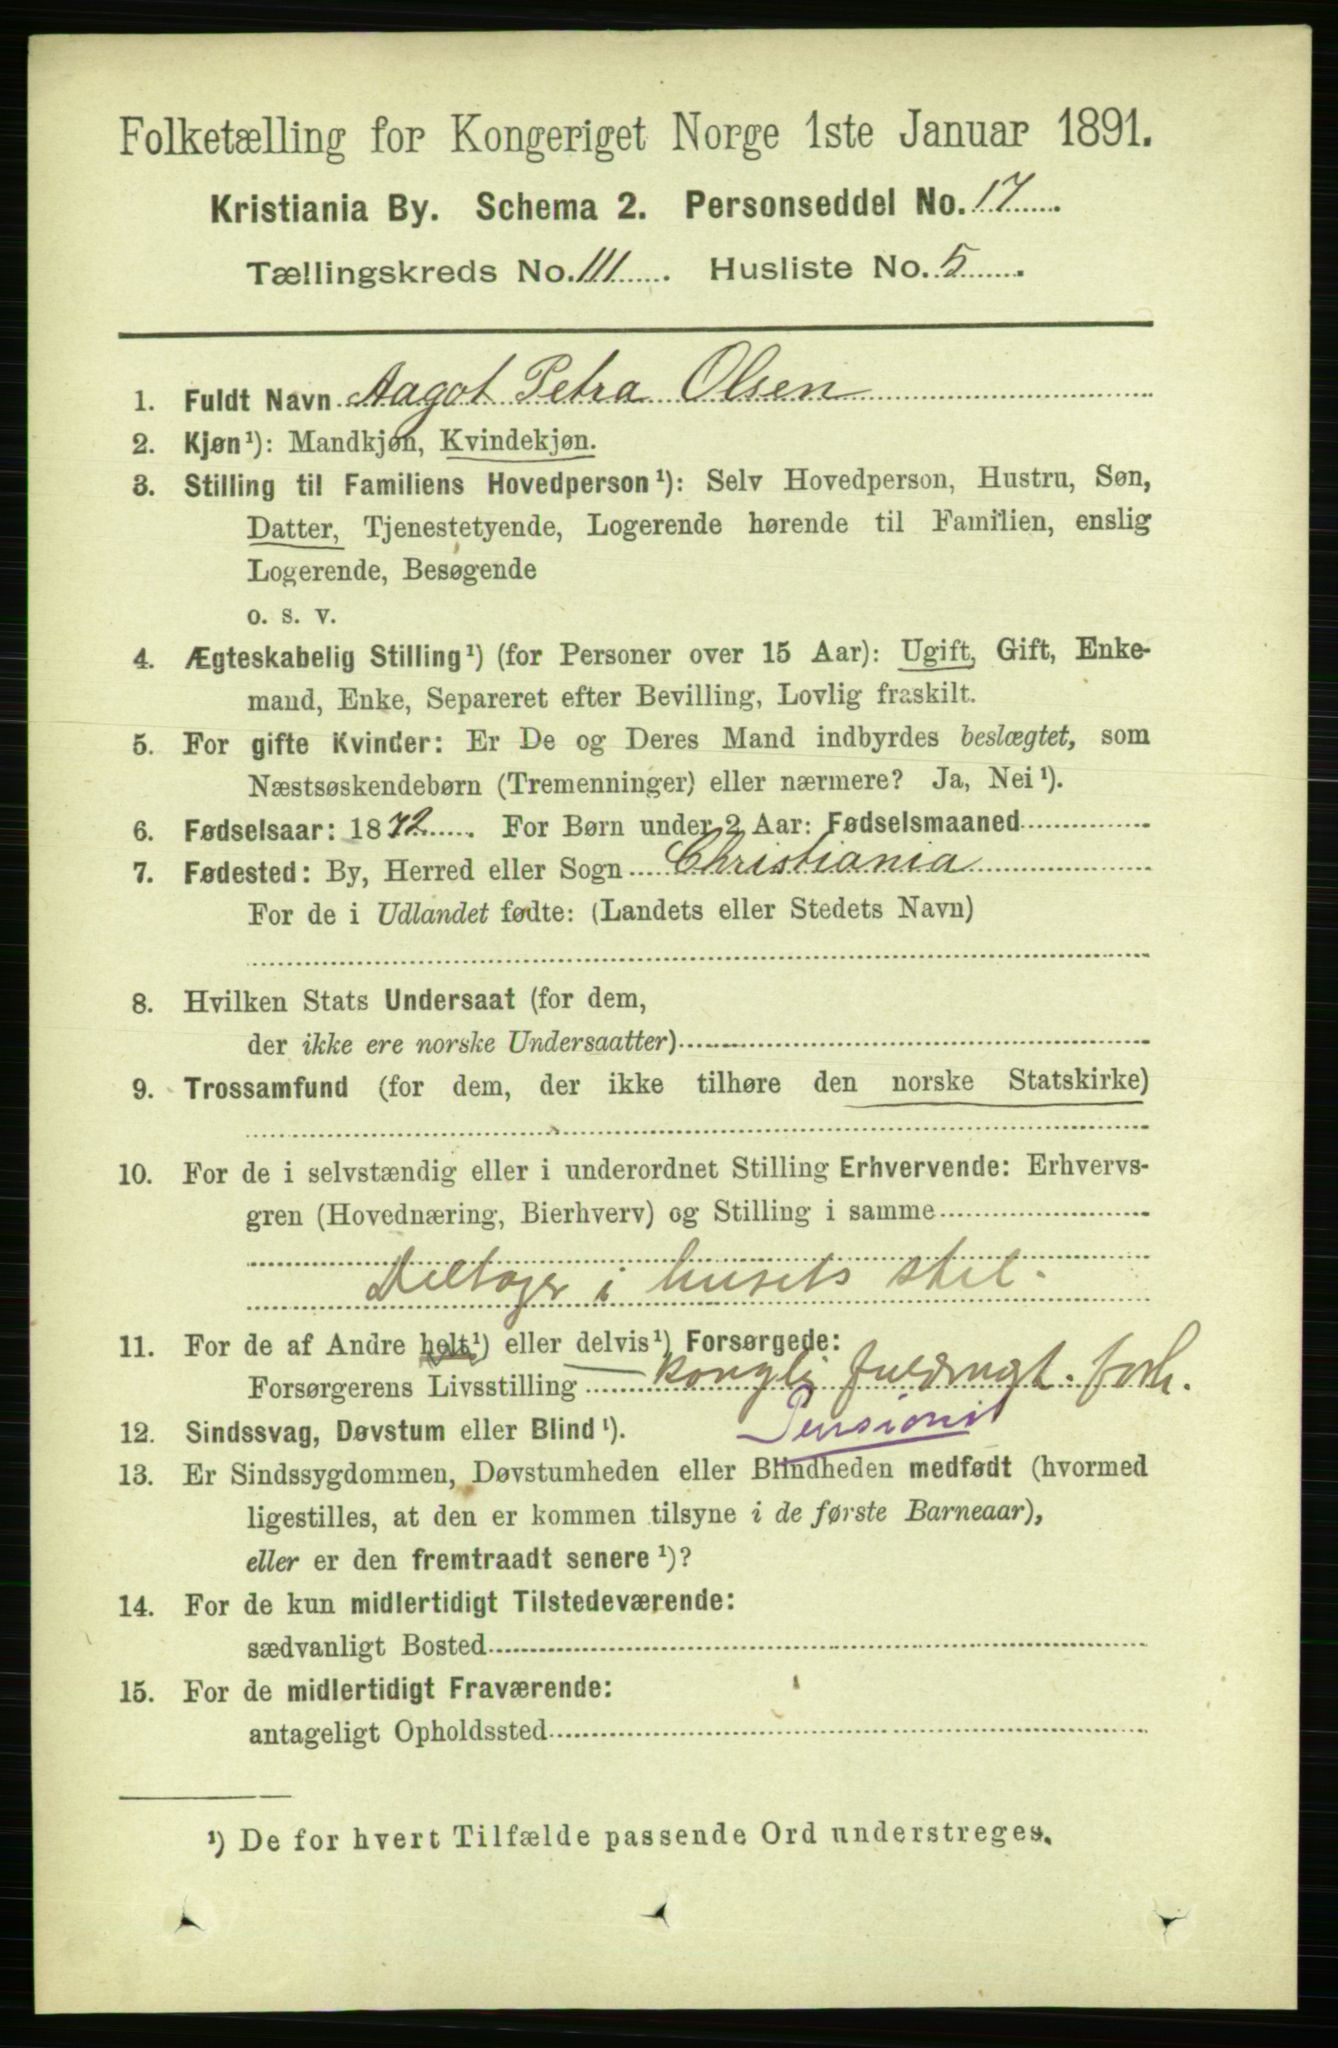 Folketælling for Kongeriget Norge 1ste Januar 1891.
Kristiania By. Schema 2. Personseddel No. 17
Tællingskreds No. 111. Husliste No. 5.
1. Fuldt Navn Aagot Petra Olsen
2. Kjøn¹): Mandkjøn, Kvindekjøn.
3. Stilling til Familiens Hovedperson¹): Selv Hovedperson, Hustru, Søn,
Datter, Tjenestetyende, Logerende hørende til Familien, enslig
Logerende, Besøgende
o. s. v.
4. Ægteskabelig Stilling¹) (for Personer over 15 Aar): Ugift, Gift, Enke-
mand, Enke, Separeret efter Bevilling, Lovlig fraskilt.
5. For gifte Kvinder: Er De og Deres Mand indbyrdes beslægtet, som
Næstsøskendebørn (Tremenninger) eller nærmere? Ja, Nei¹).
6. Fødselsaar: 1872. For Børn under 2 Aar: Fødselsmaaned
7. Fødested: By, Herred eller Sogn Christiania
For de i Udlandet fødte: (Landets eller Stedets Navn)
8. Hvilken Stats Undersaat (for dem,
der ikke ere norske Undersaatter)
9. Trossamfund (for dem, der ikke tilhøre den norske Statskirke)
10. For de i selvstændig eller i underordnet Stilling Erhvervende: Erhvervs-
gren (Hovednæring, Bierhverv) og Stilling i samme
Deltager i husets stel.
11. For de af Andre helt¹) eller delvis¹) Forsørgede:
Forsørgerens Livsstilling kongli fuldmgt. forh.
Pensionist
12. Sindssvag, Døvstum eller Blind¹).
13. Er Sindssygdommen, Døvstumheden eller Blindheden medfødt (hvormed
ligestilles, at den er kommen tilsyne i de første Barneaar),
eller er den fremtraadt senere¹)?
14. For de kun midlertidigt Tilstedeværende:
sædvanligt Bosted
15. For de midlertidigt Fraværende:
antageligt Opholdssted
¹) De for hvert Tilfælde passende Ord understreges.